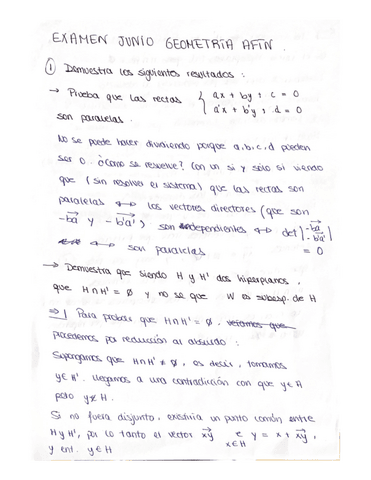 EXAMEN JUNIO GEOMETRÍA AFÍN.
① Demuestra los siguientes resultados:
→ Prueba que las rectas { ax + by + c = 0
a'x + b'y + d = 0
son paralelas.
No se puede hacer dividiendo porque a,b,c,d pueden
ser 0. ¿Cómo se resuelve? Con un si y sólo si viendo
que (sin resolver el sistema) que las rectas son
paralelas ↔ los vectores directores (que son
-ba y -b'a') son dependientes ↔ det |-ba -b'a'|
↔ son paralelas = 0
→ Demuestra que siendo H y H' dos hiperplanos,
que H∩H' = ∅ y no se que W es subesp. de H
⇒] Para probar que H∩H' = ∅, veamos que
procedemos por reducción al absurdo:
Supongamos que H∩H' ≠ ∅, es decir, tomamos
y∈H'. Llegamos a una contradicción con que y∈H
pero y∉H.
Si no fuera disjunto, existiría un punto común entre
H y H', por lo tanto el vector xy e y = x + xy,
x∈H
y ent. y∈H